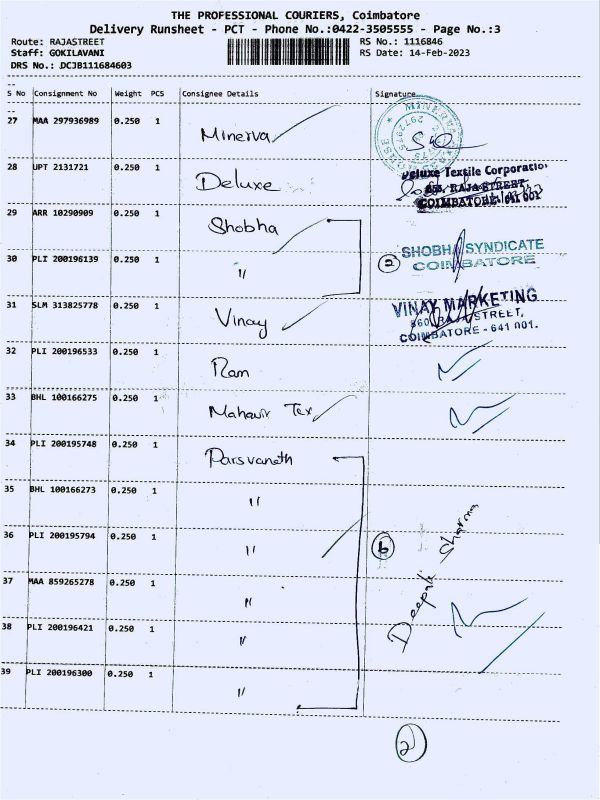 THE PROFESSIONAL COURIERS, Coimbatore
Delivery Runsheet - PCT - Phone No.:0422-3505555 - Page No.:3
Route: RAJASTREET RS No.: 1116846
Staff: GOKILAVANI RS Date: 14-Feb-2023
DRS No.: DCJB111684603
S No Consignment No Weight PCS Consignee Details Signature
27 MAA 297936989 0.250 1 Minerva
28 UPT 2131721 0.250 1 Deluxe
Deluxe Textile Corporation
RAJA STREET
COIMBATORE-641 001
29 ARR 10290909 0.250 1 Shobha
30 PLI 200196139 0.250 1 "
2 SHOBHA SYNDICATE
COIMBATORE
31 SLM 313825778 0.250 1 Vinay
VINAY MARKETING
860, RAJA STREET,
COIMBATORE - 641 001.
32 PLI 200196533 0.250 1 Ram
33 BHL 100166275 0.250 1 Mahavir Tex
34 PLI 200195748 0.250 1 Parsvanath
35 BHL 100166273 0.250 1 "
36 PLI 200195794 0.250 1 " 6
Deepak Sharma
37 MAA 859265278 0.250 1 "
38 PLI 200196421 0.250 1 "
39 PLI 200196300 0.250 1 "
2